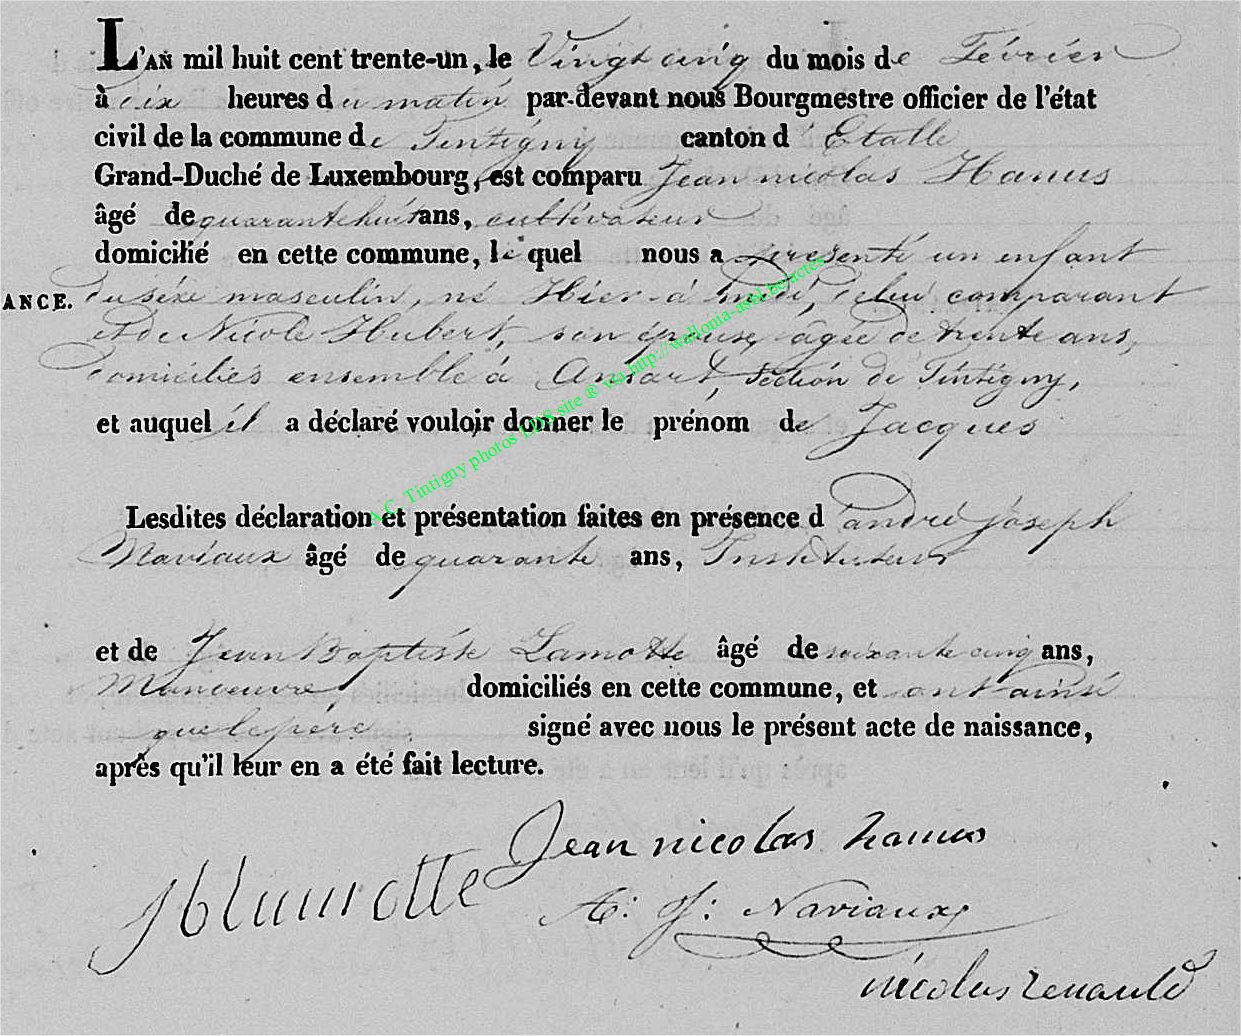 L'AN mil huit cent trente-un, le Vingt cinq du mois de Février
à dix heures du matin par-devant nous Bourgmestre officier de l'état
civil de la commune de Tintigny canton d'Etalle
Grand-Duché de Luxembourg, est comparu Jean nicolas Hanus
âgé de quarante huit ans, cultivateur
domicilié en cette commune, lequel nous a présenté un enfant
ANCE. du séxe masculin, né Hier à midi, de lui comparant
et de Nicole Hubert, son épouse, âgée de trente ans,
domiciliés ensemble à Ansart, Section de Tintigny,
et auquel il a déclaré vouloir donner le prénom de Jacques
A.C. Tintigny photos LDS site ® via http://wallonia-asbl.be/actes
Lesdites déclaration et présentation faites en présence d'andré joseph
Naviaux âgé de quarante ans, Instituteur
et de Jean Baptiste Lamotte âgé de soixante cinq ans,
Manoeuvre domiciliés en cette commune, et ont ainsi
que le père signé avec nous le présent acte de naissance,
après qu'il leur en a été fait lecture.
Jean nicolas hanus
J b lamotte
A: J: Naviaux
nicolas renauld